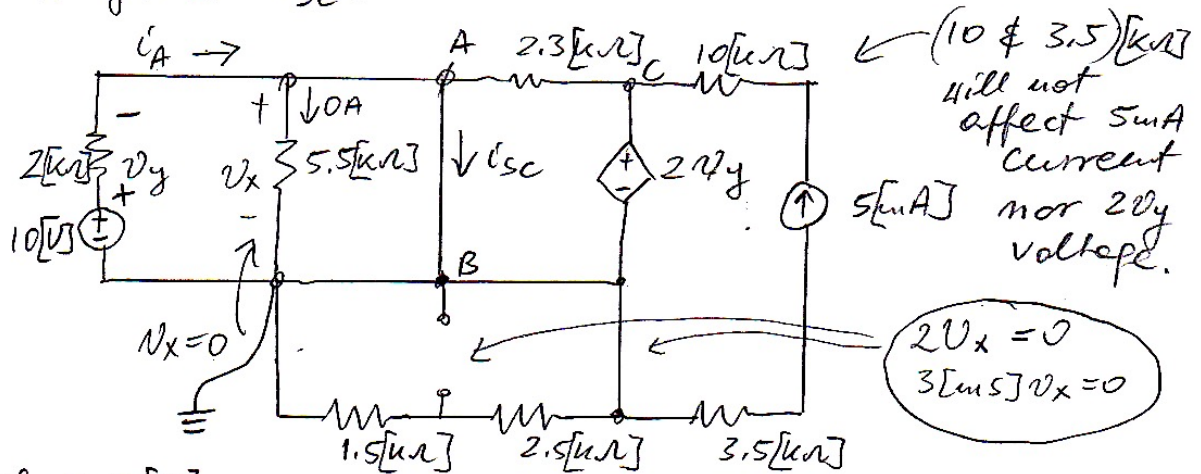 i_A →
A
2.3[kΩ]
C
10[kΩ]
← (10 & 3.5)[kΩ]
will not
affect 5mA
current
nor 2v_y
voltage.
-
+ ↓0A
2[kΩ] v_y
v_x 5.5[kΩ]
↓ i_SC
+
-
2v_y
↑ 5[mA]
+
-
10[V]
+
-
B
v_x=0
2v_x = 0
3[mS]v_x=0
1.5[kΩ]
2.5[kΩ]
3.5[kΩ]